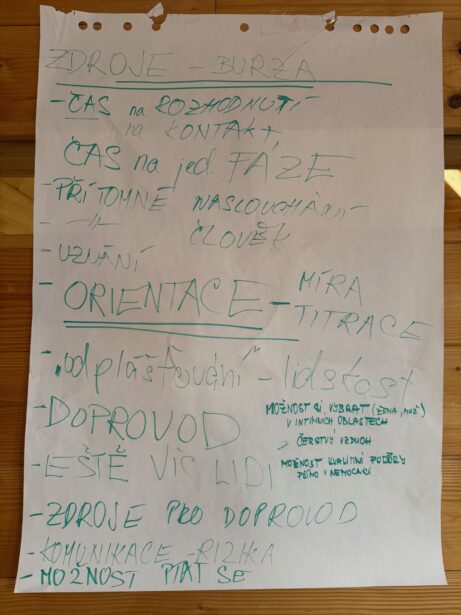 ZDROJE - BURZA
- ČAS na ROZHODNUTÍ
na KONTAKT,
ČAS na jed. FÁZE
- PŘÍTOMNÉ NASLOUCHÁNÍ
- -||- ČLOVĚK
- UZNÁNÍ
- ORIENTACE - MÍRA
- TITRACE
- „odplášťování" - lidskost
- DOPROVOD
MOŽNOST SI VYBRAT (ŽENA, MUŽ)
V INTIMNÍCH OBLASTECH
ČERSTVÝ VZDUCH
- EŠTĚ VÍC LIDÍ
MOŽNOST KVALITNÍ PODPORY
PŘÍMO V NEMOCNICI
- ZDROJE PRO DOPROVOD
- KOMUNIKACE - RIZIKA
- MOŽNOST PTÁT SE